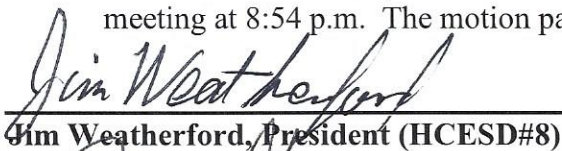 meeting at 8:54 p.m. The motion pa
Jim Weatherford
Jim Weatherford, President (HCESD#8)